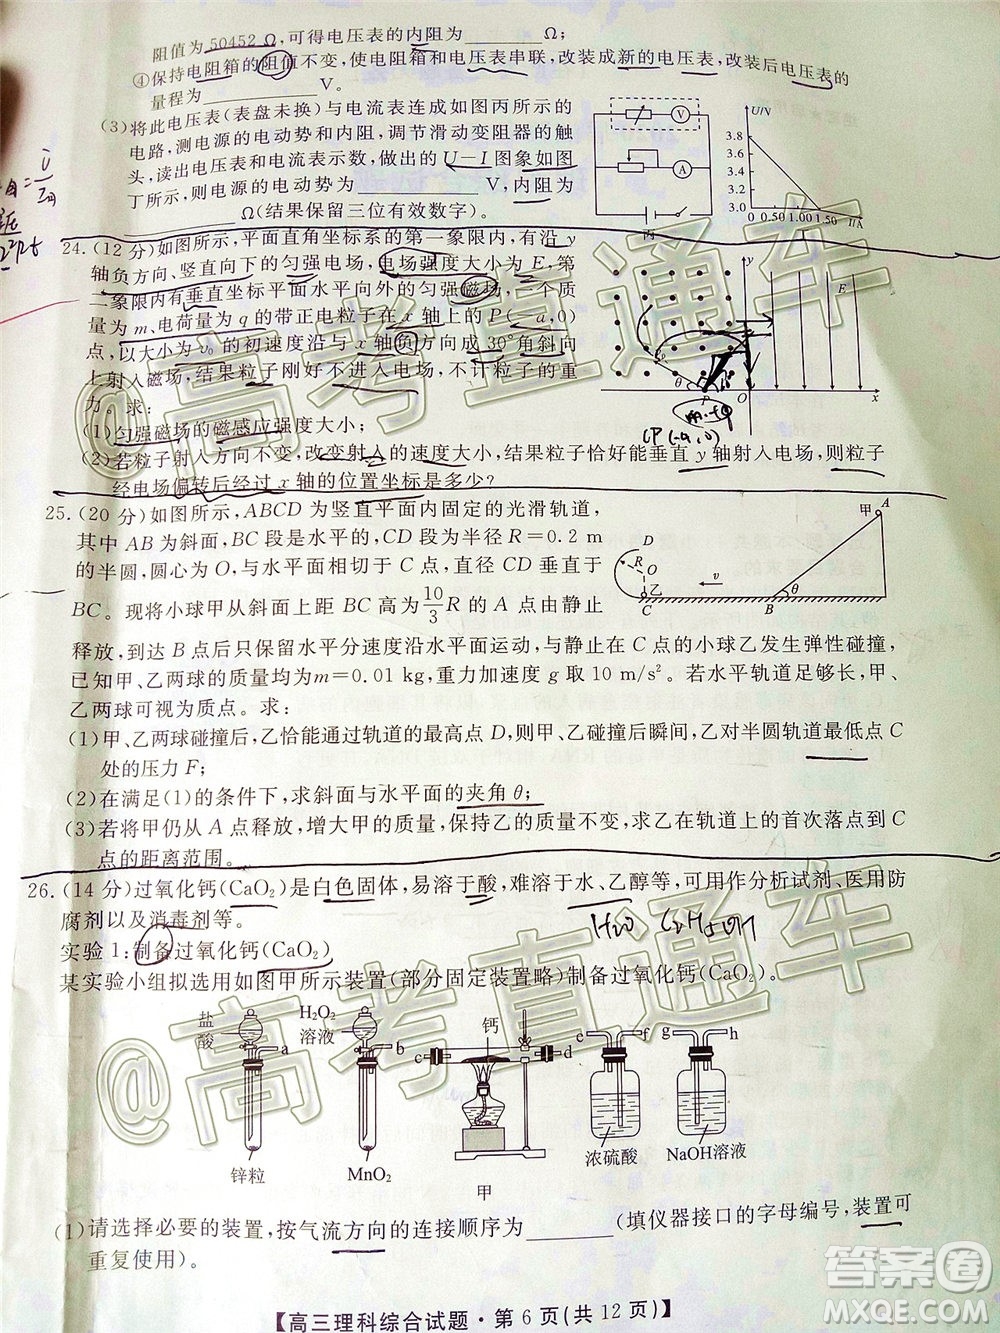 阻值为 50452 Ω,可得电压表的内阻为________Ω;
④保持电阻箱的阻值不变,使电阻箱和电压表串联,改装成新的电压表,改装后电压表的
量程为________V。
(3)将此电压表(表盘未换)与电流表连成如图丙所示的
电路,测电源的电动势和内阻,调节滑动变阻器的触
头,读出电压表和电流表示数,做出的 U-I 图象如图
丁所示,则电源的电动势为________V,内阻为
________Ω(结果保留三位有效数字)。
V
A
U/V
3.8
3.6
3.4
3.2
3.0
0 0.50 1.00 1.50 I/A
24.(12 分)如图所示,平面直角坐标系的第一象限内,有沿 y
轴负方向、竖直向下的匀强电场,电场强度大小为 E,第
二象限内有垂直坐标平面水平向外的匀强磁场,一个质
量为 m、电荷量为 q 的带正电粒子在 x 轴上的 P(-a,0)
点,以大小为 v₀ 的初速度沿与 x 轴负方向成 30°角斜向
上射入磁场,结果粒子刚好不进入电场,不计粒子的重
力。求:
(1)匀强磁场的磁感应强度大小;
(2)若粒子射入方向不变,改变射入的速度大小,结果粒子恰好能垂直 y 轴射入电场,则粒子
经电场偏转后经过 x 轴的位置坐标是多少?
y
E
v₀
θ
P
O
x
m.+q
(P(-a,0)
25.(20 分)如图所示,ABCD 为竖直平面内固定的光滑轨道,
其中 AB 为斜面,BC 段是水平的,CD 段为半径 R=0.2 m
的半圆,圆心为 O,与水平面相切于 C 点,直径 CD 垂直于
BC。现将小球甲从斜面上距 BC 高度为 10/3 R 的 A 点由静止
释放,到达 B 点后只保留水平分速度沿水平面运动,与静止在 C 点的小球乙发生弹性碰撞,
已知甲、乙两球的质量均为m=0.01 kg,重力加速度 g 取 10 m/s²。若水平轨道足够长,甲、
乙两球可视为质点。求:
(1)甲、乙两球碰撞后,乙恰能通过轨道的最高点 D,则甲、乙碰撞后瞬间,乙对半圆轨道 C
处的压力 F;
(2)在满足(1)的条件下,求斜面与水平面的夹角 θ;
(3)若将甲仍从 A 点释放,增大甲的质量,保持乙的质量不变,求乙在轨道上的首次落点到 C
点的距离范围。
甲
A
D
R
O
乙
C
v
B
θ
26.(14 分)过氧化钙(CaO₂)是白色固体,易溶于酸,难溶于水、乙醇等,可用作分析试剂、医用防
腐剂以及消毒剂等。
H₂O C₂H₅OH
实验 1:制备过氧化钙(CaO₂)
某实验小组拟选用如图甲所示装置(部分固定装置略)制备过氧化钙(CaO₂)。
盐酸
a
锌粒
H₂O₂溶液
b
MnO₂
c
钙
d
甲
e
f
浓硫酸
g
h
NaOH溶液
(1)请选择必要的装置,按气流方向的连接顺序为________(填仪器接口的字母编号,装置可
重复使用)。
【高三理科综合试题·第 6 页(共 12 页)】
@高考直通车
@高考直通车
答案圈
MXQE.COM